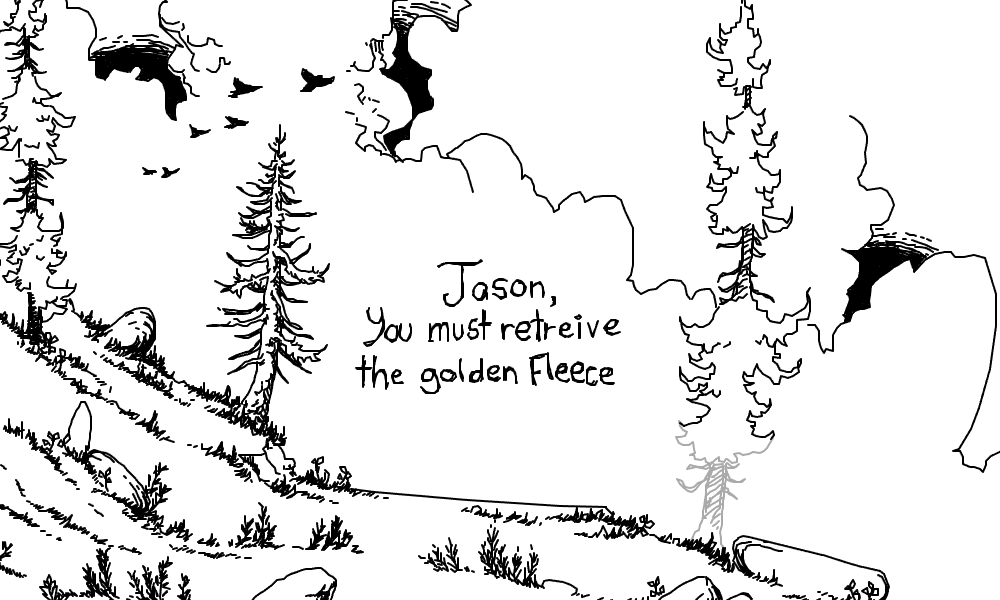 Jason,
You must retreive
the golden Fleece